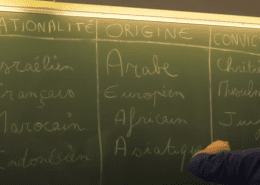 ATIONALITÉ ORIGINE CONVIC
sraélien Arabe Chréti
rançais Européen Musulm
arocain Africain Jui
ndonésien Asiatique